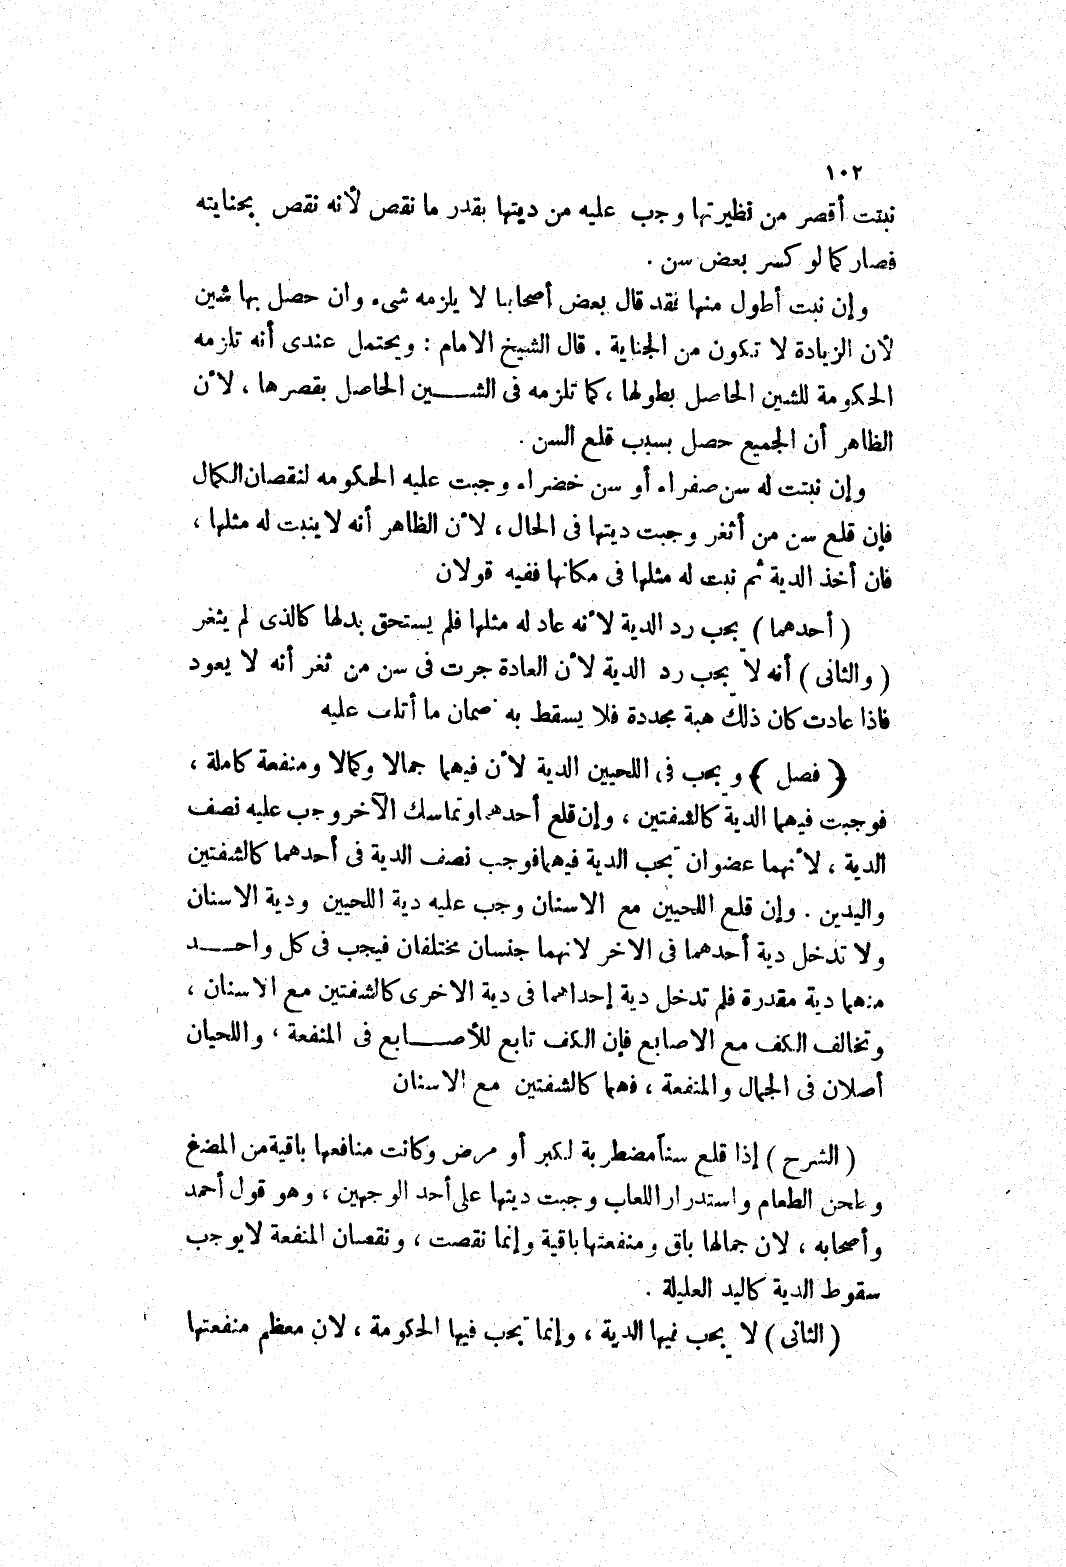 ١٠٢
نبتت أقصر من نظيرتها وجب عليه من ديتها بقدر ما نقص لأنه نقص بجنايته
فصار كما لو كسر بعض سن .
وإن نبت أطول منها فقد قال بعض أصحابنا لا يلزمه شىء وان حصل بها شين
لأن الزيادة لا تكون من الجناية . قال الشيخ الامام : ويحتمل عندى أنه تلزمه
الحكومة للشين الحاصل بطولها ، كما تلزمه فى الشـــين الحاصل بقصرها ، لأن
الظاهر أن الجميع حصل بسبب قلع السن .
وإن نبتت له سن صفراء أو سن خضراء وجبت عليه الحكومه لنقصان الكمال
فإن قلع سن من أثغر وجبت ديتها فى الحال ، لأن الظاهر أنه لا ينبت له مثلها ،
فان أخذ الدية ثم نبت له مثلها فى مكانها ففيه قولان
( أحدهما ) يجب رد الدية لأنه عاد له مثلها فلم يستحق بدلها كالذى لم يثغر
( والثانى ) أنه لا يجب رد الدية لأن العادة جرت فى سن من ثغر أنه لا يعود
فاذا عادت كان ذلك هبة مجددة فلا يسقط به ضمان ما أتلف عليه
( فصل ) ويجب فى اللحيين الدية لأن فيهما جمالا وكمالا ومنفعة كاملة ،
فوجبت فيهما الدية كالشفتين ، وإن قلع أحدهما وتماسك الآخر وجب عليه نصف
الدية ، لأنهما عضوان تجب الدية فيهما فوجب نصف الدية فى أحدهما كالشفتين
واليدين . وإن قلع اللحيين مع الاسنان وجب عليه دية اللحيين ودية الاسنان
ولا تدخل دية أحدهما فى الاخر لانهما جنسان مختلفان فيجب فى كل واحـــد
منهما دية مقدرة فلم تدخل دية إحداهما فى دية الاخرى كالشفتين مع الاسنان ،
وتخالف الكف مع الاصابع فإن الكف تابع للأصـــابع فى المنفعة ، واللحيان
أصلان فى الجمال والمنفعة ، فهما كالشفتين مع الاسنان
( الشرح ) إذا قلع سناً مضطربة لكبر أو مرض وكانت منافعها باقية من المضغ
وطحن الطعام واستدرار اللعاب وجبت ديتها على أحد الوجهين ، وهو قول أحمد
وأصحابه ، لان جمالها باق ومنفعتها باقية وإنما نقصت ، ونقصان المنفعة لا يوجب
سقوط الدية كاليد العليلة .
( الثانى ) لا يجب فيها الدية ، وإنما تجب فيها الحكومة ، لان معظم منفعتها